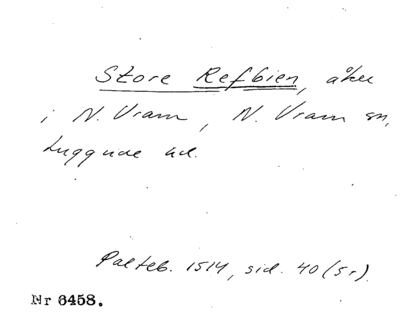 Store Refbien, åker
i N. Vram, N. Vram sn,
Luggude hd.
Palteb. 1514, sid. 40 (5r).
Nr 6458.